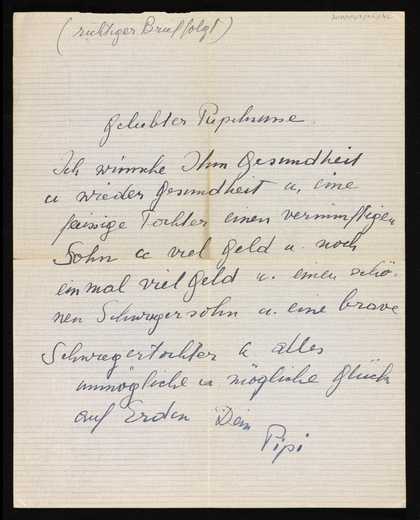 (richtiger Brief folgt)
Geliebter
Ich wünsche Ihm Gesundheit
u wieder Gesundheit u, eine
Tochter einen vernünftigen
Sohn u viel Geld u. noch
einmal viel Geld u. einen schö-
nen Schwiegersohn u. eine brave
Schwiegertochter u alles
unmögliche u mögliche Glück
auf Erden Dein
Pipi